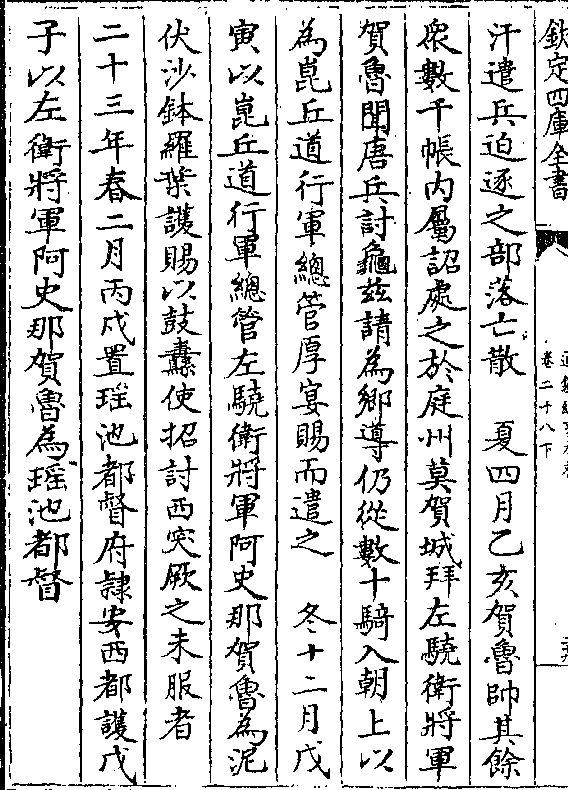 欽定四庫全書
卷二十八下
汗遣兵迫逐之部落亡散　夏四月乙亥賀魯帥其餘
衆數千帳内屬詔處之於庭州莫賀城拜左驍衛將軍
賀魯聞唐兵討龜兹請為鄉導仍從數十騎入朝上以
為崑丘道行軍總管厚宴賜而遣之　冬十二月戊
寅以崑丘道行軍總管左驍衛將軍阿史那賀魯為泥
伏沙鉢羅葉護賜以鼓纛使招討西突厥之未服者
二十三年春二月丙戌置瑶池都督府隷安西都護戊
子以左衛將軍阿史那賀魯為瑶池都督